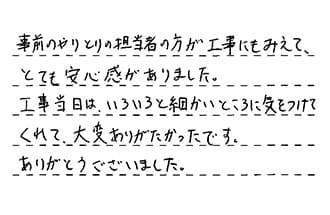 事前のやりとりの担当者の方が工事にもみえて、
とても安心感がありました。
工事当日は、いろいろと細かいところに気をつけて
くれて、大変ありがたかったです。
ありがとうございました。